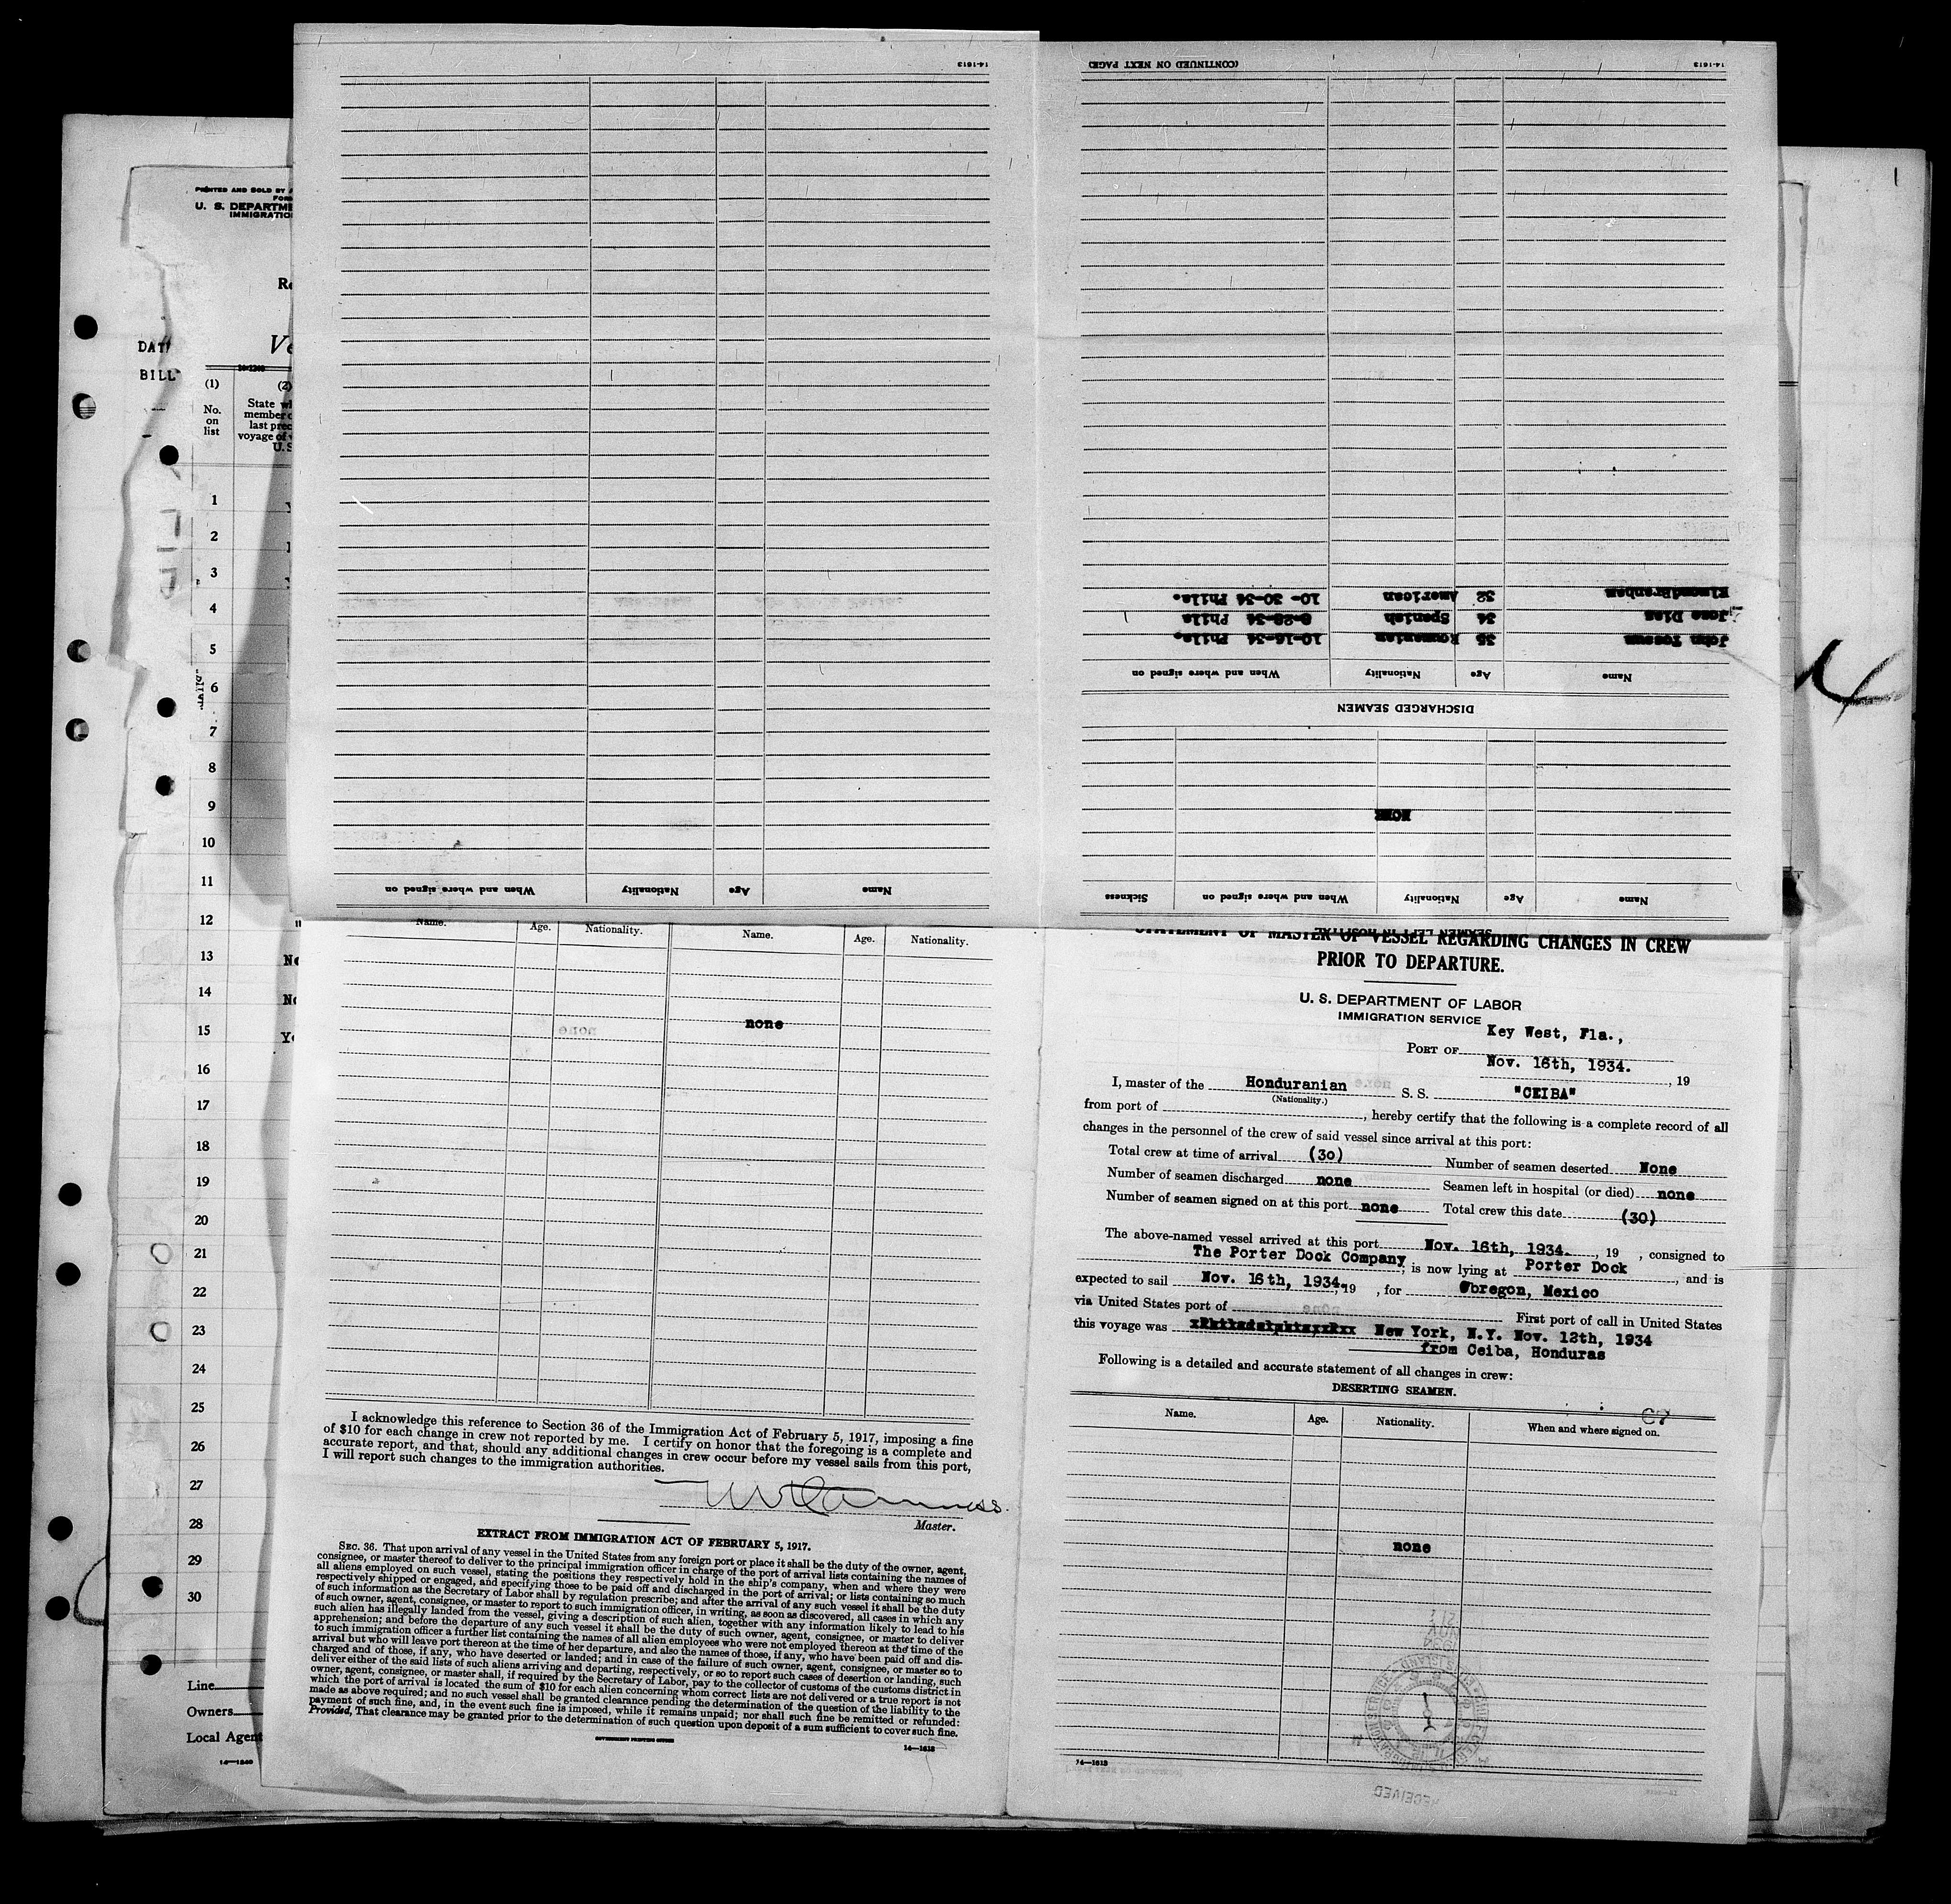 PRINTED AND SOLD BY
U. S. DEPARTME
IMMIGRATIO
DAT
BILL
(1)
No.
on
list
(2)
State wh
member o
last prec
voyage of v
U. S
1
2
3
4
5
6
7
8
9
10
11
12
13
14
15
16
17
18
19
20
21
22
23
24
25
26
27
28
29
30
Line
Owners
Local Agent
14—1240
14-1613
Name
Age
Nationality
When and where signed on
SEAMEN LEFT IN HOSPITAL
Name
Age
Nationality
When and where signed on
Sickness
NONE
DISCHARGED SEAMEN
Name
Age
Nationality
When and where signed on
35 Roumanian 10-16-34 Phila.
Jose Dias 34 Spanish 8-28-34 Phila
32 American 10-30-34 Phila.
14-1613
(CONTINUED ON NEXT PAGE)
Name. Age. Nationality. Name. Age. Nationality.
none
I acknowledge this reference to Section 36 of the Immigration Act of February 5, 1917, imposing a fine
of $10 for each change in crew not reported by me. I certify on honor that the foregoing is a complete and
accurate report, and that, should any additional changes in crew occur before my vessel sails from this port,
I will report such changes to the immigration authorities.
Master.
EXTRACT FROM IMMIGRATION ACT OF FEBRUARY 5, 1917.
SEC. 36. That upon arrival of any vessel in the United States from any foreign port or place it shall be the duty of the owner, agent,
consignee, or master thereof to deliver to the principal immigration officer in charge of the port of arrival lists containing the names of
all aliens employed on such vessel, stating the positions they respectively hold in the ship's company, when and where they were
respectively shipped or engaged, and specifying those to be paid off and discharged in the port of arrival; or lists containing so much
of such information as the Secretary of Labor shall by regulation prescribe; and after the arrival of any such vessel it shall be the duty
of such owner, agent, consignee, or master to report to such immigration officer, in writing, as soon as discovered, all cases in which any
such alien has illegally landed from the vessel, giving a description of such alien, together with any information likely to lead to his
apprehension; and before the departure of any such vessel it shall be the duty of such owner, agent, consignee, or master to deliver
to such immigration officer a further list containing the names of all alien employees who were not employed thereon at the time of the
arrival but who will leave port thereon at the time of her departure, and also the names of those, if any, who have been paid off and dis-
charged and of those, if any, who have deserted or landed; and in case of the failure of such owner, agent, consignee, or master so to
deliver either of the said lists of such aliens arriving and departing, respectively, or so to report such cases of desertion or landing, such
owner, agent, consignee, or master shall, if required by the Secretary of Labor, pay to the collector of customs of the customs district in
which the port of arrival is located the sum of $10 for each alien concerning whom correct lists are not delivered or a true report is not
made as above required; and no such vessel shall be granted clearance pending the determination of the question of the liability to the
payment of such fine, and, in the event such fine is imposed, while it remains unpaid; nor shall such fine be remitted or refunded:
Provided, That clearance may be granted prior to the determination of such question upon deposit of a sum sufficient to cover such fine.
GOVERNMENT PRINTING OFFICE
14—1613
STATEMENT OF MASTER OF VESSEL REGARDING CHANGES IN CREW
PRIOR TO DEPARTURE.
U. S. DEPARTMENT OF LABOR
IMMIGRATION SERVICE
PORT OF Key West, Fla.,
Nov. 16th, 1934. , 19
I, master of the Honduranian S. S. "CEIBA"
(Nationality.)
from port of , hereby certify that the following is a complete record of all
changes in the personnel of the crew of said vessel since arrival at this port:
Total crew at time of arrival (30) Number of seamen deserted None
Number of seamen discharged none Seamen left in hospital (or died) none
Number of seamen signed on at this port none Total crew this date (30)
The above-named vessel arrived at this port Nov. 16th, 1934. , 19 , consigned to
The Porter Dock Company, is now lying at Porter Dock , and is
expected to sail Nov. 16th, 1934. , 19 , for Obregon, Mexico
via United States port of First port of call in United States
this voyage was New York, N.Y. Nov. 12th, 1934
from Ceiba, Honduras
Following is a detailed and accurate statement of all changes in crew:
DESERTING SEAMEN.
Name. Age. Nationality. When and where signed on.
none
14—1613
RECEIVED